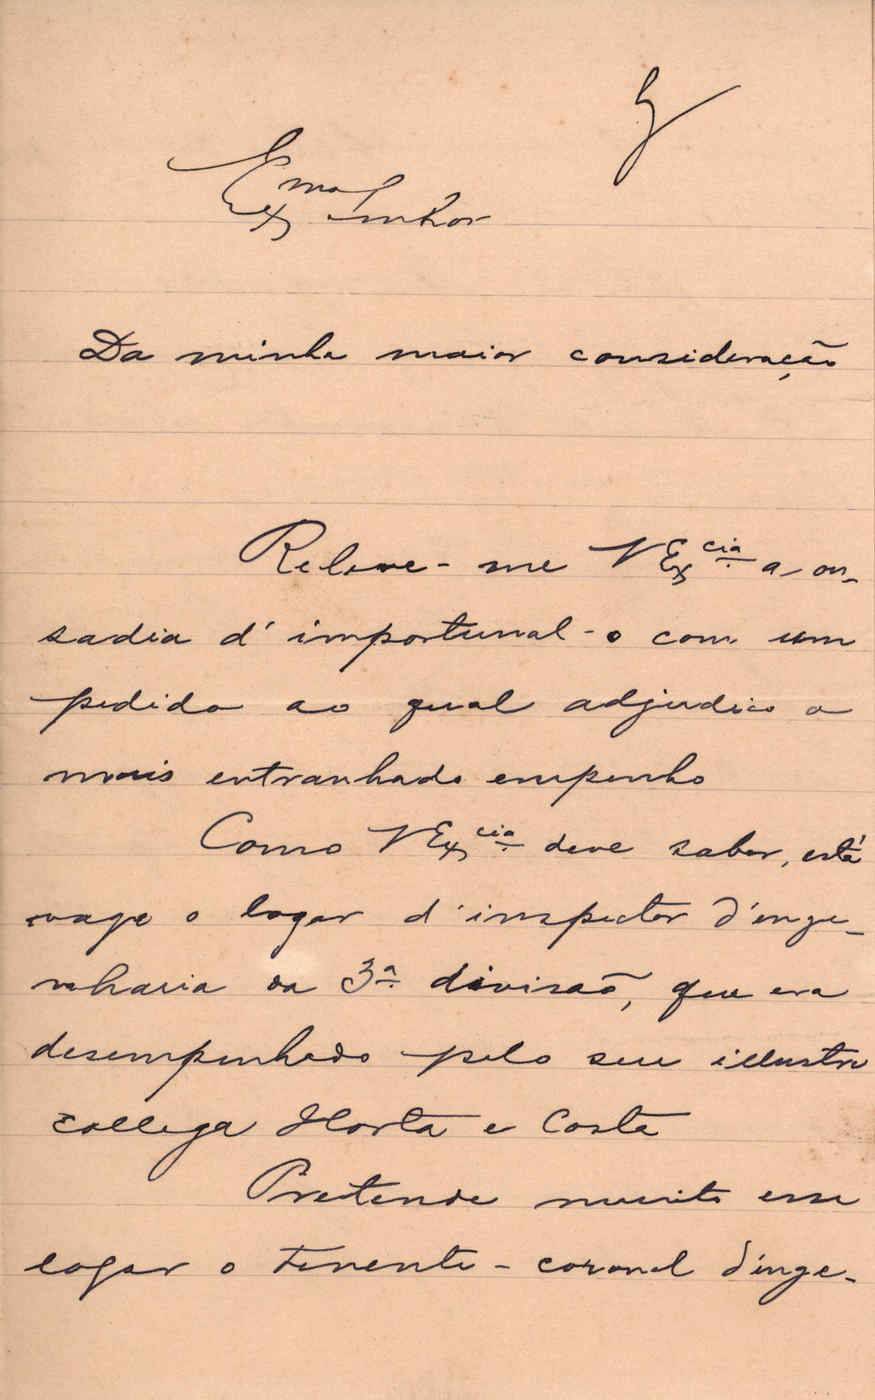 Exmo Senhor
Da minha maior consideração
Releve-me V Excia a ou-
sadia d'importunal-o com um
pedido ao qual adjudico o
mais entranhado empenho
Como V Excia deve saber, está
vago o logar d'inspector d'enge-
nharia da 3ª divisão, que era
desempenhado pelo seu illustre
collega Horta e Costa
Pretende muito esse
logar o tenente-coronel d'enge-